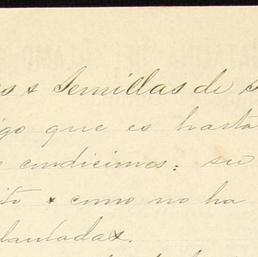 s & Semillas de
go que es hasta
condiciones: su
ito & como no ha
lantadas.